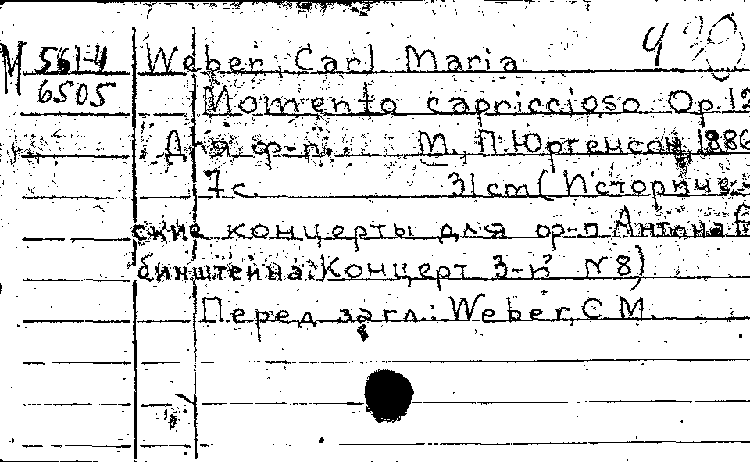 М 561-4 Weber, Carl Maria
6505 Momento capriccioso. Op.12
Для ф-п. М., П. Юргенсон, 1886
7 с. 31 cm (Историче-
ские концерты для ф-п Антона
бинштейна: Концерт 3-й N 8)
Перед загл.: Weber, C M.